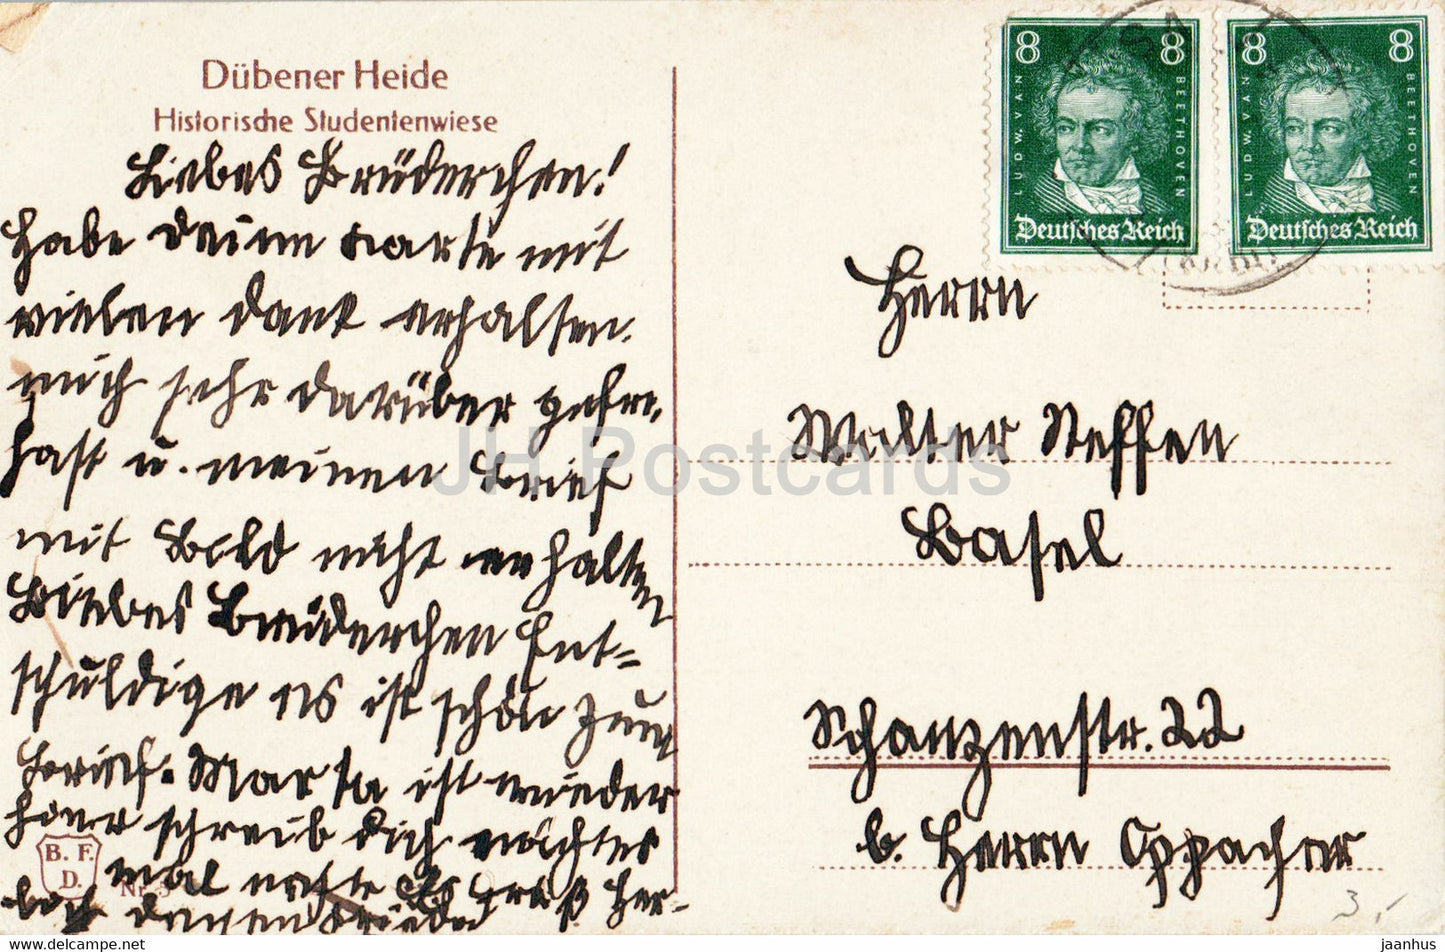 Dübener Heide
Historische Studentenwiese
Liebes Brüderchen!
Habe deine Karte mit
vielen Dank erhalten.
mich sehr darüber gefre.
hast u. meinen Brief
mit Bild nicht erhalten
Liebes Brüderchen Ent=
schuldige es ist schön zum
Brief. Martha ist wieder
schreib dich nächstes
mal
B. F.
D.
Nr. 3
8 8
LUDW. VAN BEETHOVEN
Deutsches Reich
8 8
LUDW. VAN BEETHOVEN
Deutsches Reich
Herrn
Walter Steffen
Basel
Schanzenstr. 22
b. Herrn
3,-
JH Postcards
www.delcampe.net
jaanhus